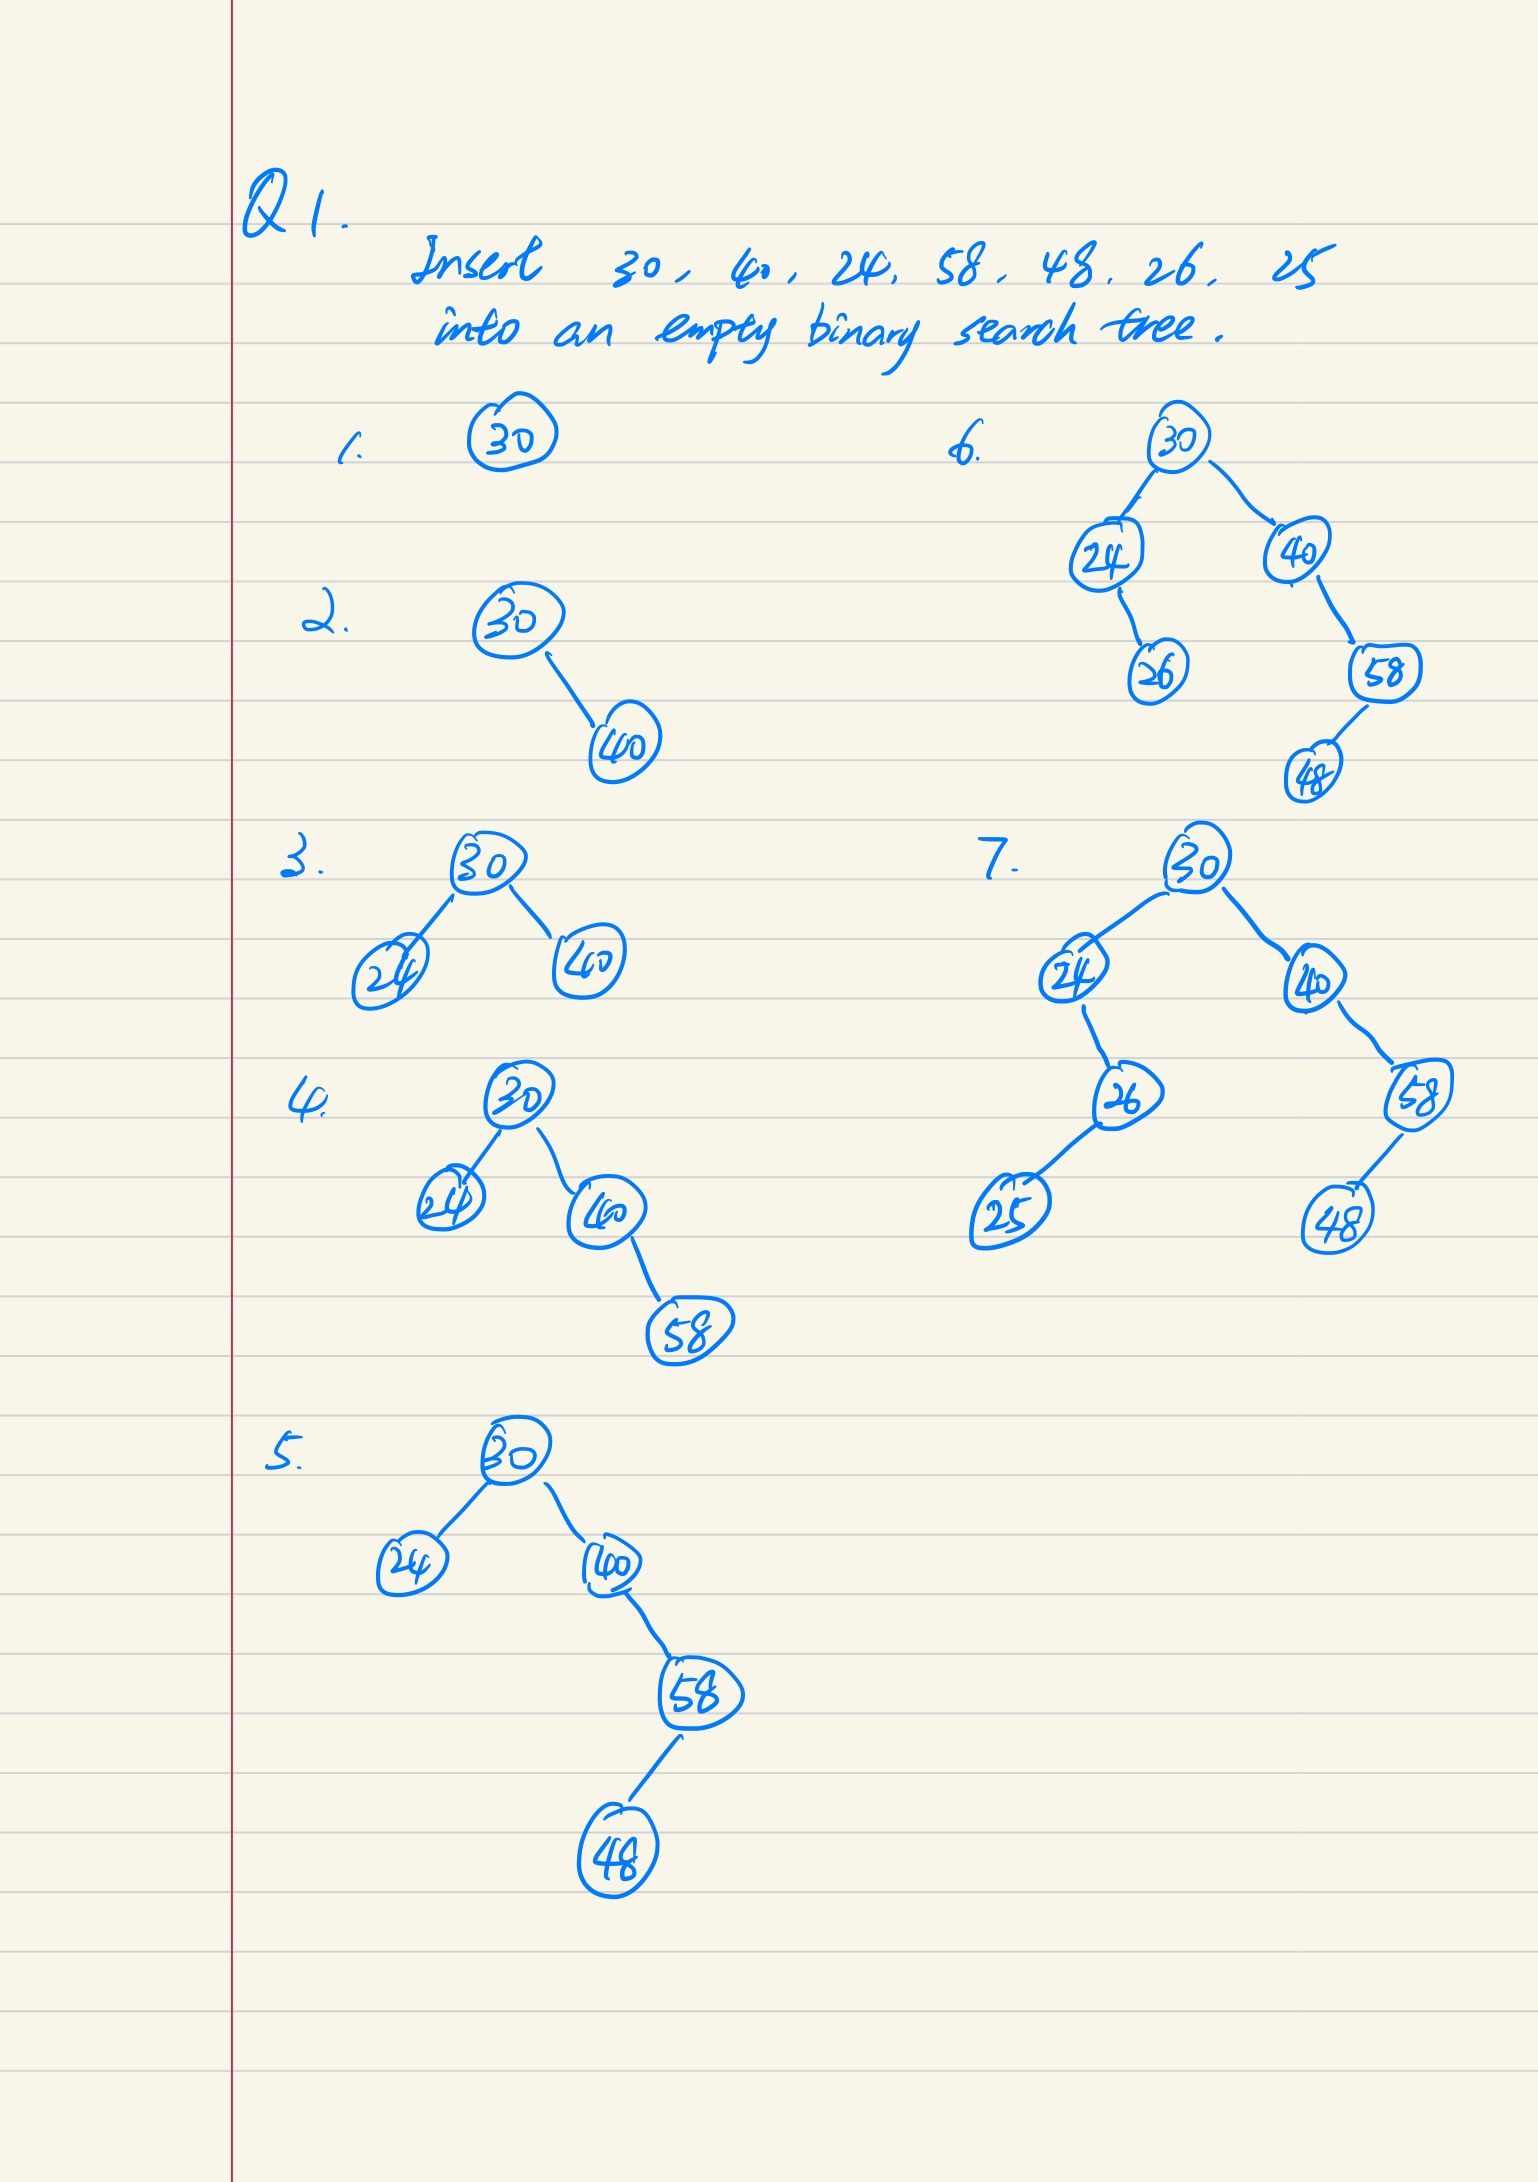 Q1.
Insert 30, 40, 24, 58, 48, 26, 25
into an empty binary search tree.
1.
30
2.
30
40
3.
30
24 40
4.
30
24 40
58
5.
30
24 40
58
48
6.
30
24 40
26 58
48
7.
30
24 40
26 58
25 48